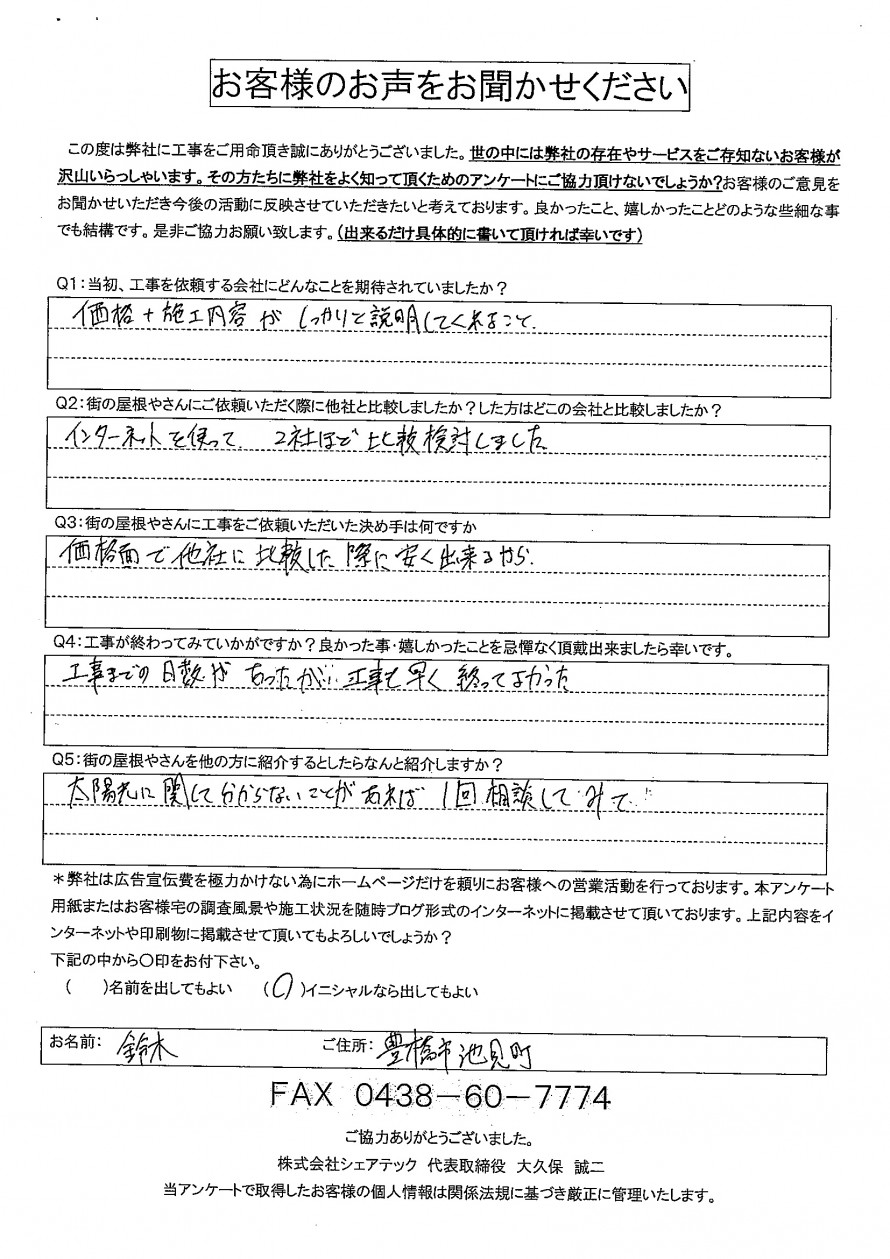 お客様のお声をお聞かせください
この度は弊社に工事をご用命頂き誠にありがとうございました。世の中には弊社の存在やサービスをご存知ないお客様が
沢山いらっしゃいます。その方たちに弊社をよく知って頂くためのアンケートにご協力頂けないでしょうか?お客様のご意見を
お聞かせいただき今後の活動に反映させていただきたいと考えております。良かったこと、嬉しかったことどのような些細な事
でも結構です。是非ご協力お願い致します。(出来るだけ具体的に書いて頂ければ幸いです)
Q1:当初、工事を依頼する会社にどんなことを期待されていましたか?
価格+施工内容がしっかりと説明してくれること.
Q2:街の屋根やさんにご依頼いただく際に他社と比較しましたか?した方はどこの会社と比較しましたか?
インターネットを使って 2社ほど比較検討しました
Q3:街の屋根やさんに工事をご依頼いただいた決め手は何ですか
価格面で他社に比較した際に安く出来るから.
Q4:工事が終わってみていかがですか?良かった事・嬉しかったことを忌憚なく頂戴出来ましたら幸いです。
工事までの日数があったが、工事も早く終ってよかった
Q5:街の屋根やさんを他の方に紹介するとしたらなんと紹介しますか?
太陽光に関して分からないことがあれば1回相談してみて
*弊社は広告宣伝費を極力かけない為にホームページだけを頼りにお客様への営業活動を行っております。本アンケート
用紙またはお客様宅の調査風景や施工状況を随時ブログ形式のインターネットに掲載させて頂いております。上記内容をイ
ンターネットや印刷物に掲載させて頂いてもよろしいでしょうか?
下記の中から〇印をお付下さい。
( )名前を出してもよい (〇)イニシャルなら出してもよい
お名前: 鈴木 ご住所: 豊橋市池見町
FAX 0438-60-7774
ご協力ありがとうございました。
株式会社シェアテック 代表取締役 大久保 誠二
当アンケートで取得したお客様の個人情報は関係法規に基づき厳正に管理いたします。